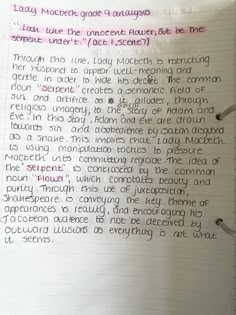 Lady Macbeth grade 9 analysis
"Look like the innocent flower, but be the
serpent under't." (act 1, scene 7)
Through this line, Lady Macbeth is instructing
her husband to appear well-meaning and
gentle in order to hide his desire. The common
noun "serpent" creates a semantic field of
sin and artifice as it alludes, through
religious imagery, to the story of Adam and
Eve. In this story, Adam and Eve are drawn
towards sin and disobedience by Satan disguised
as a snake. This implies that Lady Macbeth
is using manipulation tactics to pressure
Macbeth into committing regicide. The idea of
the "serpent" is contrasted by the common
noun "flower", which connotates beauty and
purity. Through this use of juxtaposition,
Shakespeare is conveying the key theme of
appearances vs reality, and encouraging his
Jacobean audience to not be deceived by
outward illusions as everything is not what
it seems.